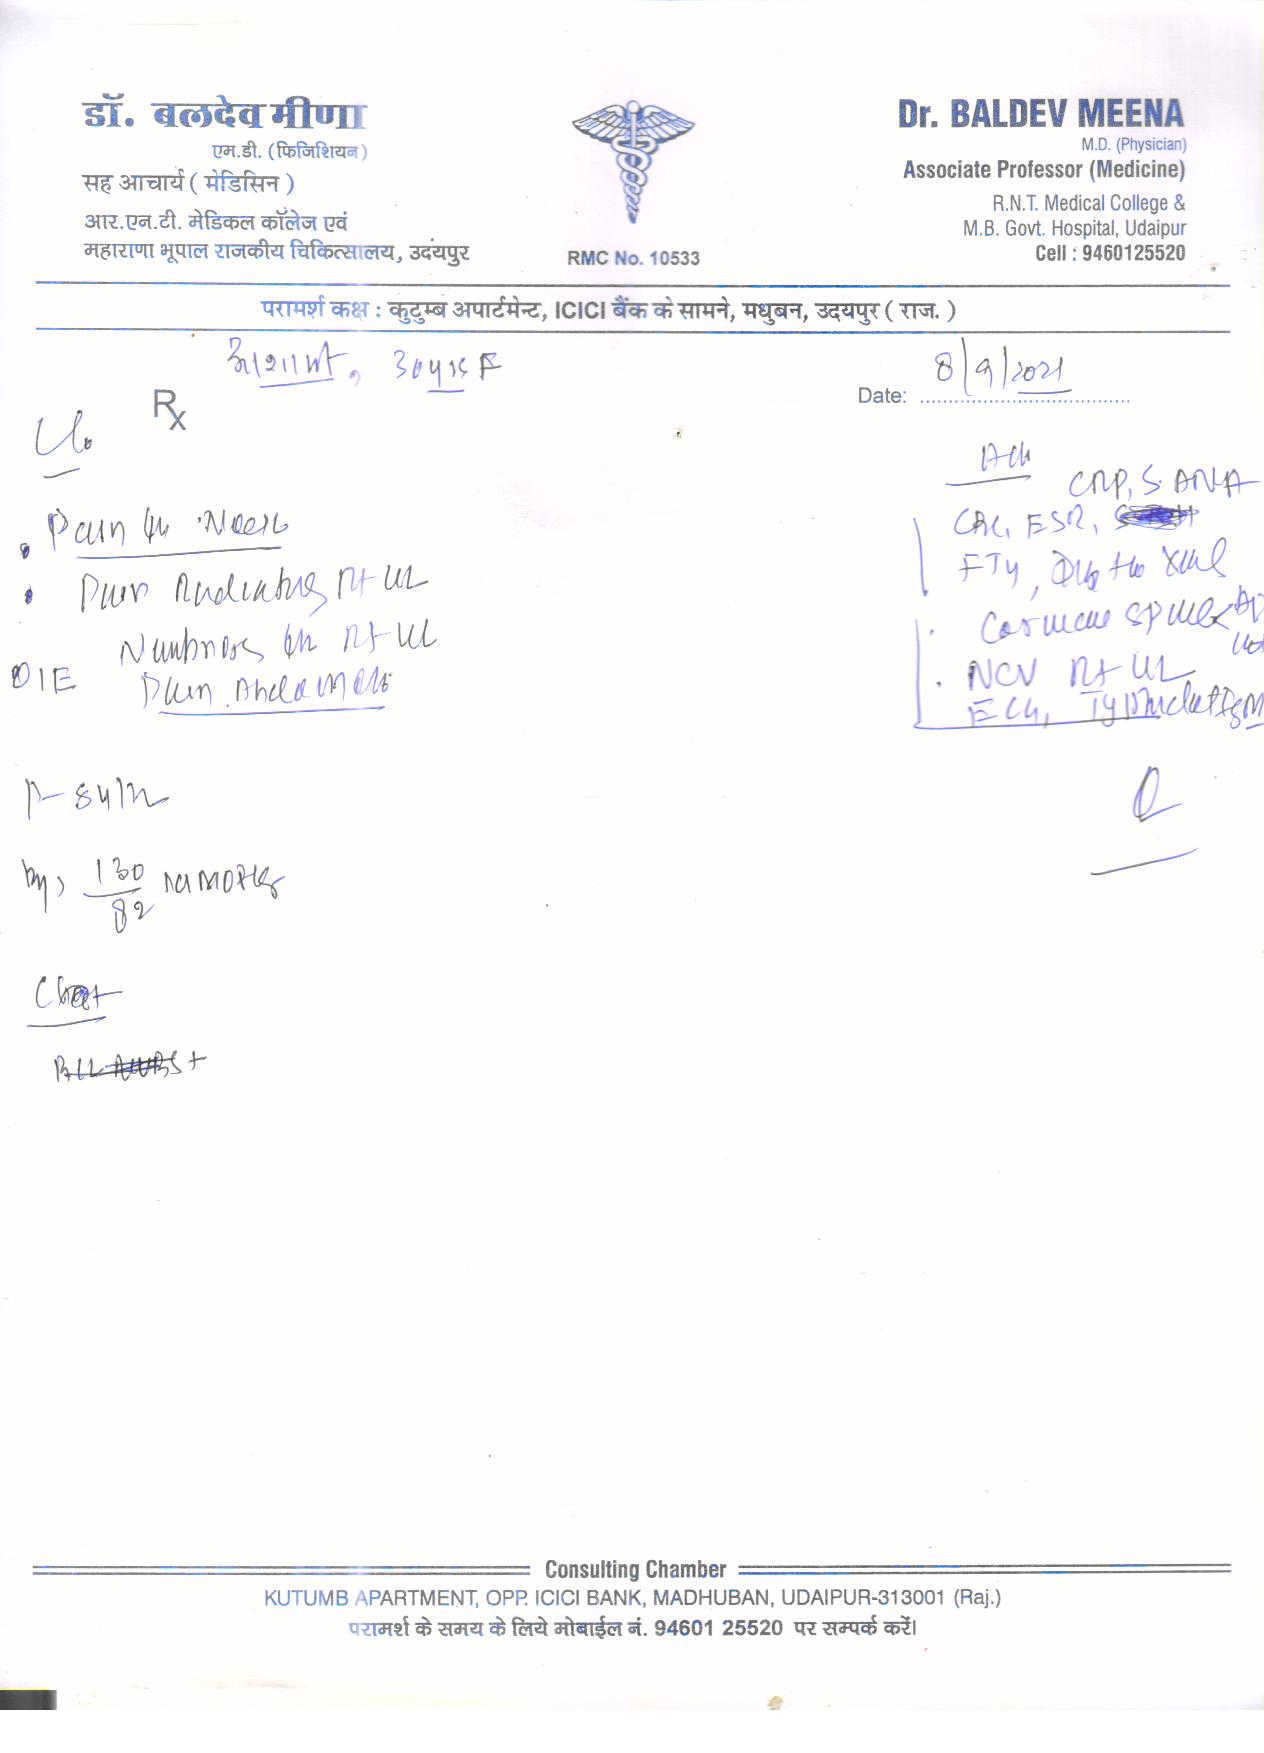 डॉ. बलदेव मीणा
एम.डी. (फिजिशियन)
सह आचार्य ( मेडिसिन )
आर.एन.टी. मेडिकल कॉलेज एवं
महाराणा भूपाल राजकीय चिकित्सालय, उदयपुर
RMC No. 10533
Dr. BALDEV MEENA
M.D. (Physician)
Associate Professor (Medicine)
R.N.T. Medical College &
M.B. Govt. Hospital, Udaipur
Cell : 9460125520
परामर्श कक्ष : कुटुम्ब अपार्टमेन्ट, ICICI बैंक के सामने, मधुबन, उदयपुर ( राज. )
30 F
Rx
Date: 8/9/2021
Pain in Neck
Pain Radiating Rt UL
Numbness in Rt UL
O/E Pain
P- 84/m
130/82
Chest
CRP, S. ANA
CBC, ESR,
NCV Rt UL
ECG,
Consulting Chamber
KUTUMB APARTMENT, OPP. ICICI BANK, MADHUBAN, UDAIPUR-313001 (Raj.)
परामर्श के समय के लिये मोबाईल नं. 94601 25520 पर सम्पर्क करें।